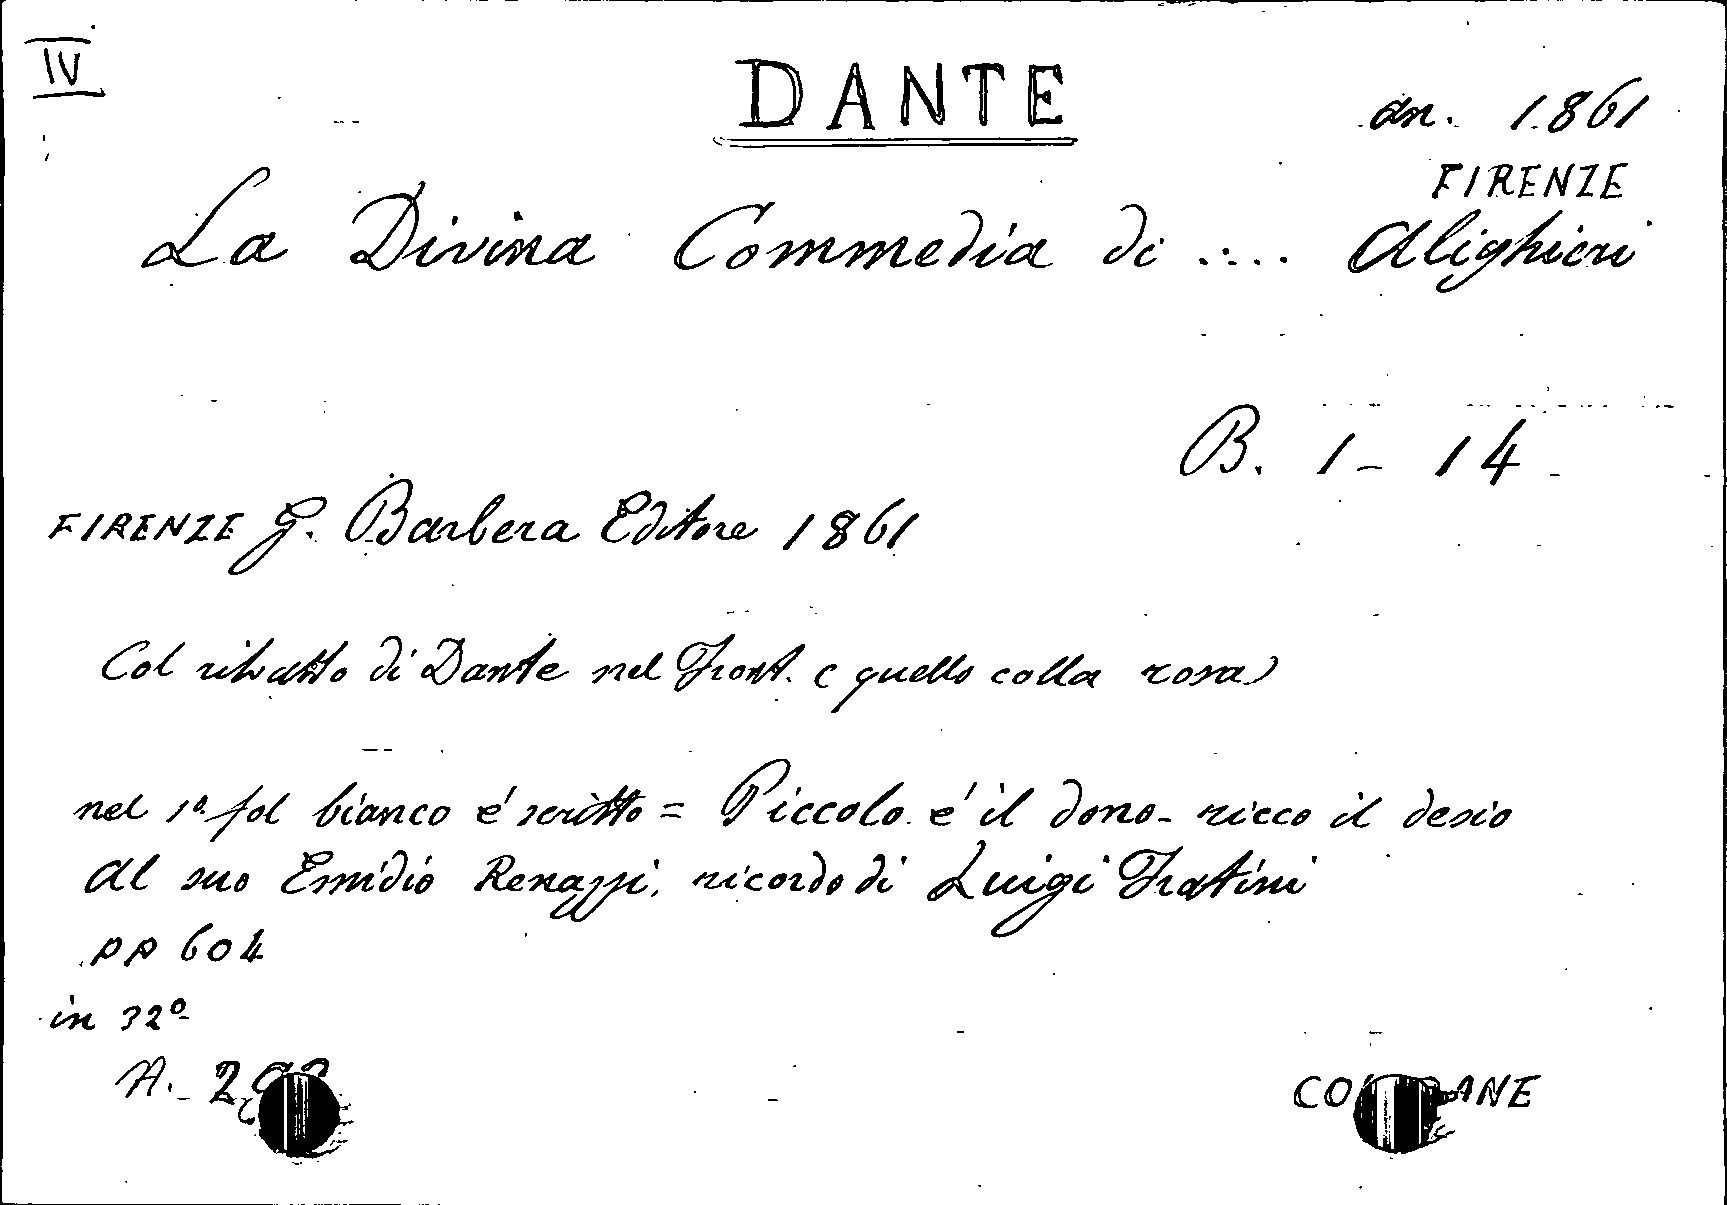 IV
DANTE
an. 1861
FIRENZE
La Divina Commedia di .... Alighieri
B. 1-14
FIRENZE G. Barbera Editore 1861
Col ritratto di Dante nel Front. (quello colla rosa)
nel 1º fol bianco é scritto = Piccolo é il dono - ricco il desio
Al suo Emidio Renazzi, ricordo di Luigi Fratini
pp 604
in 32º